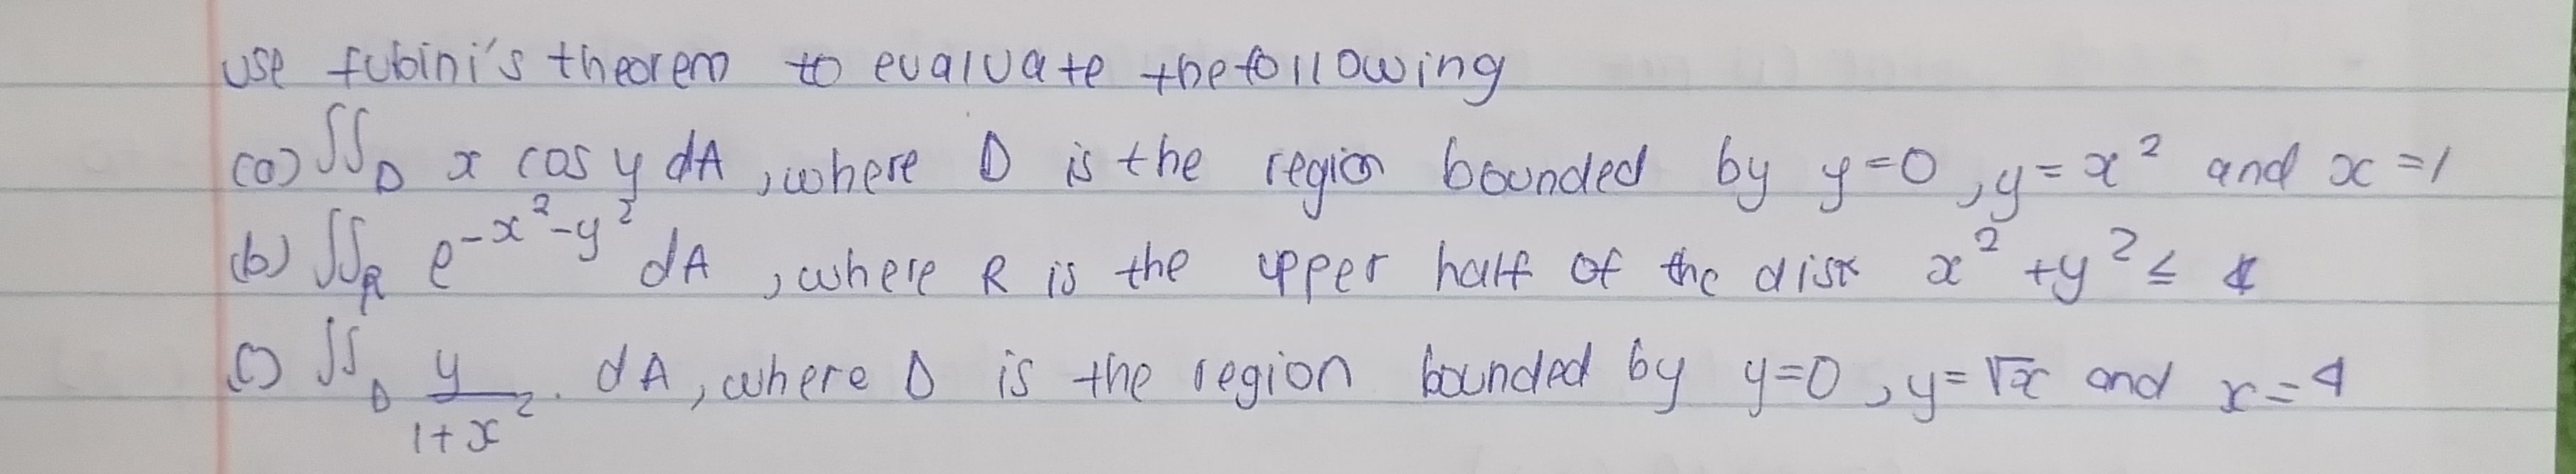 use fubini's theorem to evaluate the following
(a) ∬_D x cos y dA, where D is the region bounded by y=0, y=x² and x=1
(b) ∬_R e^{-x²-y²} dA, where R is the upper half of the disk x²+y² ≤
(c) ∬_D y/(1+x²) . dA, where D is the region bounded by y=0, y=√x and x=4